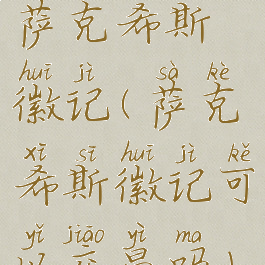 萨克希斯
huī jì sà kè
徽记(萨克
xī sī huī jì kě
希斯徽记可
yǐ jiāo yì ma
以交易吗)